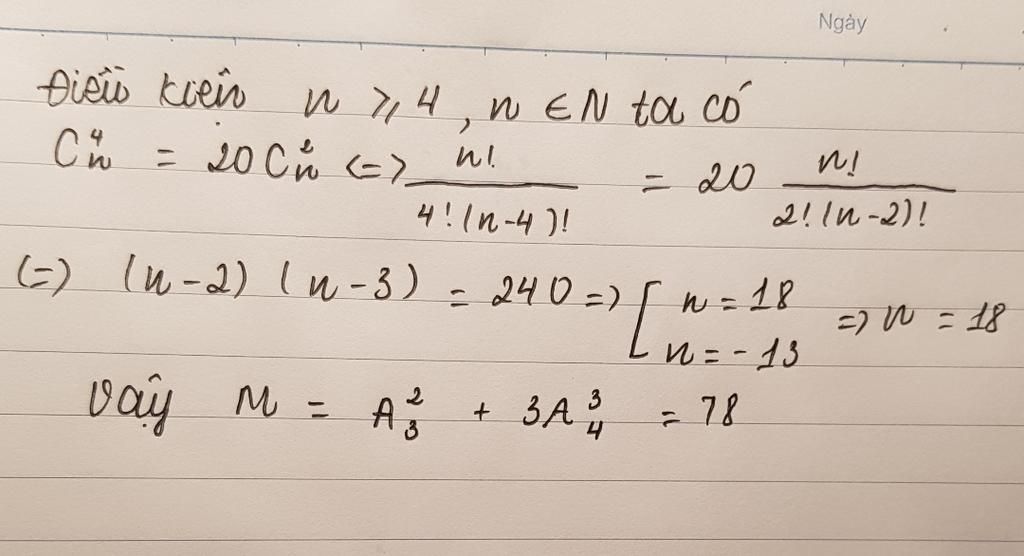 Ngày
Điều kiện n ⩾ 4, n ∈ N ta có
C⁴ₙ = 20C²ₙ <=> n! / 4!(n-4)! = 20 n! / 2!(n-2)!
(=) (n-2) (n-3) = 240 => [ n = 18 => n = 18
n = -13
Vậy M = A²₃ + 3A³₄ = 78